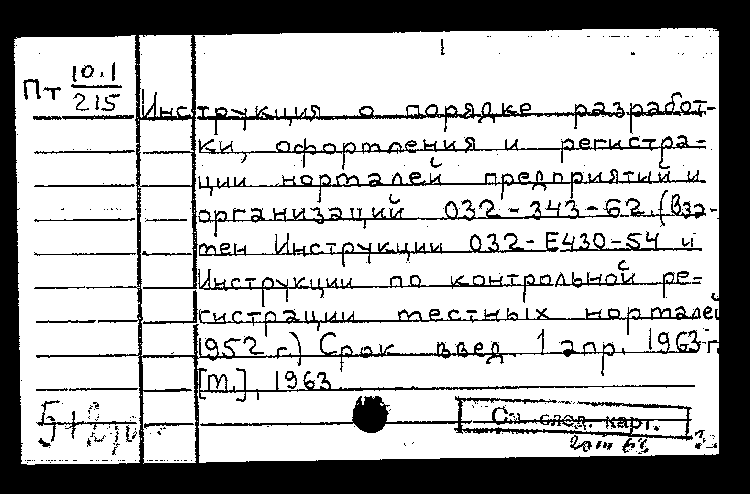 Пт 10.1
215
Инструкция о порядке разработ-
ки, оформления и регистра-
ции нормалей предприятий и
организаций 032-343-62. (Вза-
мен Инструкции 032-Е430-54 и
Инструкции по контрольной ре-
гистрации местных нормалей
1952 г.) Срок введ. 1 апр. 1963 г.
[М.], 1963
См. след. карт.